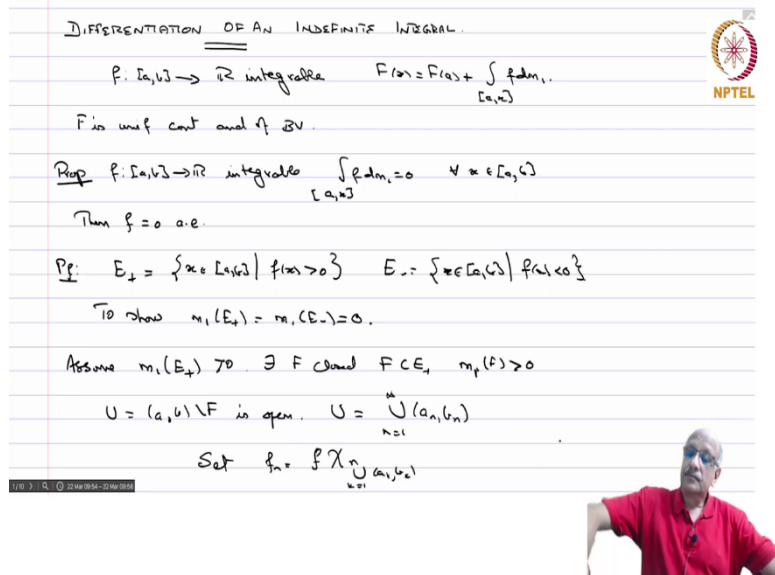 DIFFERENTIATION OF AN INDEFINITE INTEGRAL.
f: [a,b] → ℝ integrable F(x) = F(a) + ∫_{[a,x]} f dm₁.
NPTEL
F is unif cont and of BV.
Prop f: [a,b] → ℝ integrable ∫_{[a,x]} f dm₁ = 0 ∀ x ∈ [a,b]
Then f = 0 a.e.
Pf: E₊ = {x ∈ [a,b] | f(x) > 0} E₋ = {x ∈ [a,b] | f(x) < 0}
To show m₁(E₊) = m₁(E₋) = 0.
Assume m₁(E₊) > 0 ∃ F closed F ⊂ E₊ m₁(F) > 0
U = (a,b) \ F is open. U = ⋃_{n=1}^{∞} (aₙ,bₙ)
Set fₙ = f χ_{⋃_{k=1}^{n} (aₖ,bₖ)}
1/10 22 Mar 09:54–22 Mar 09:58